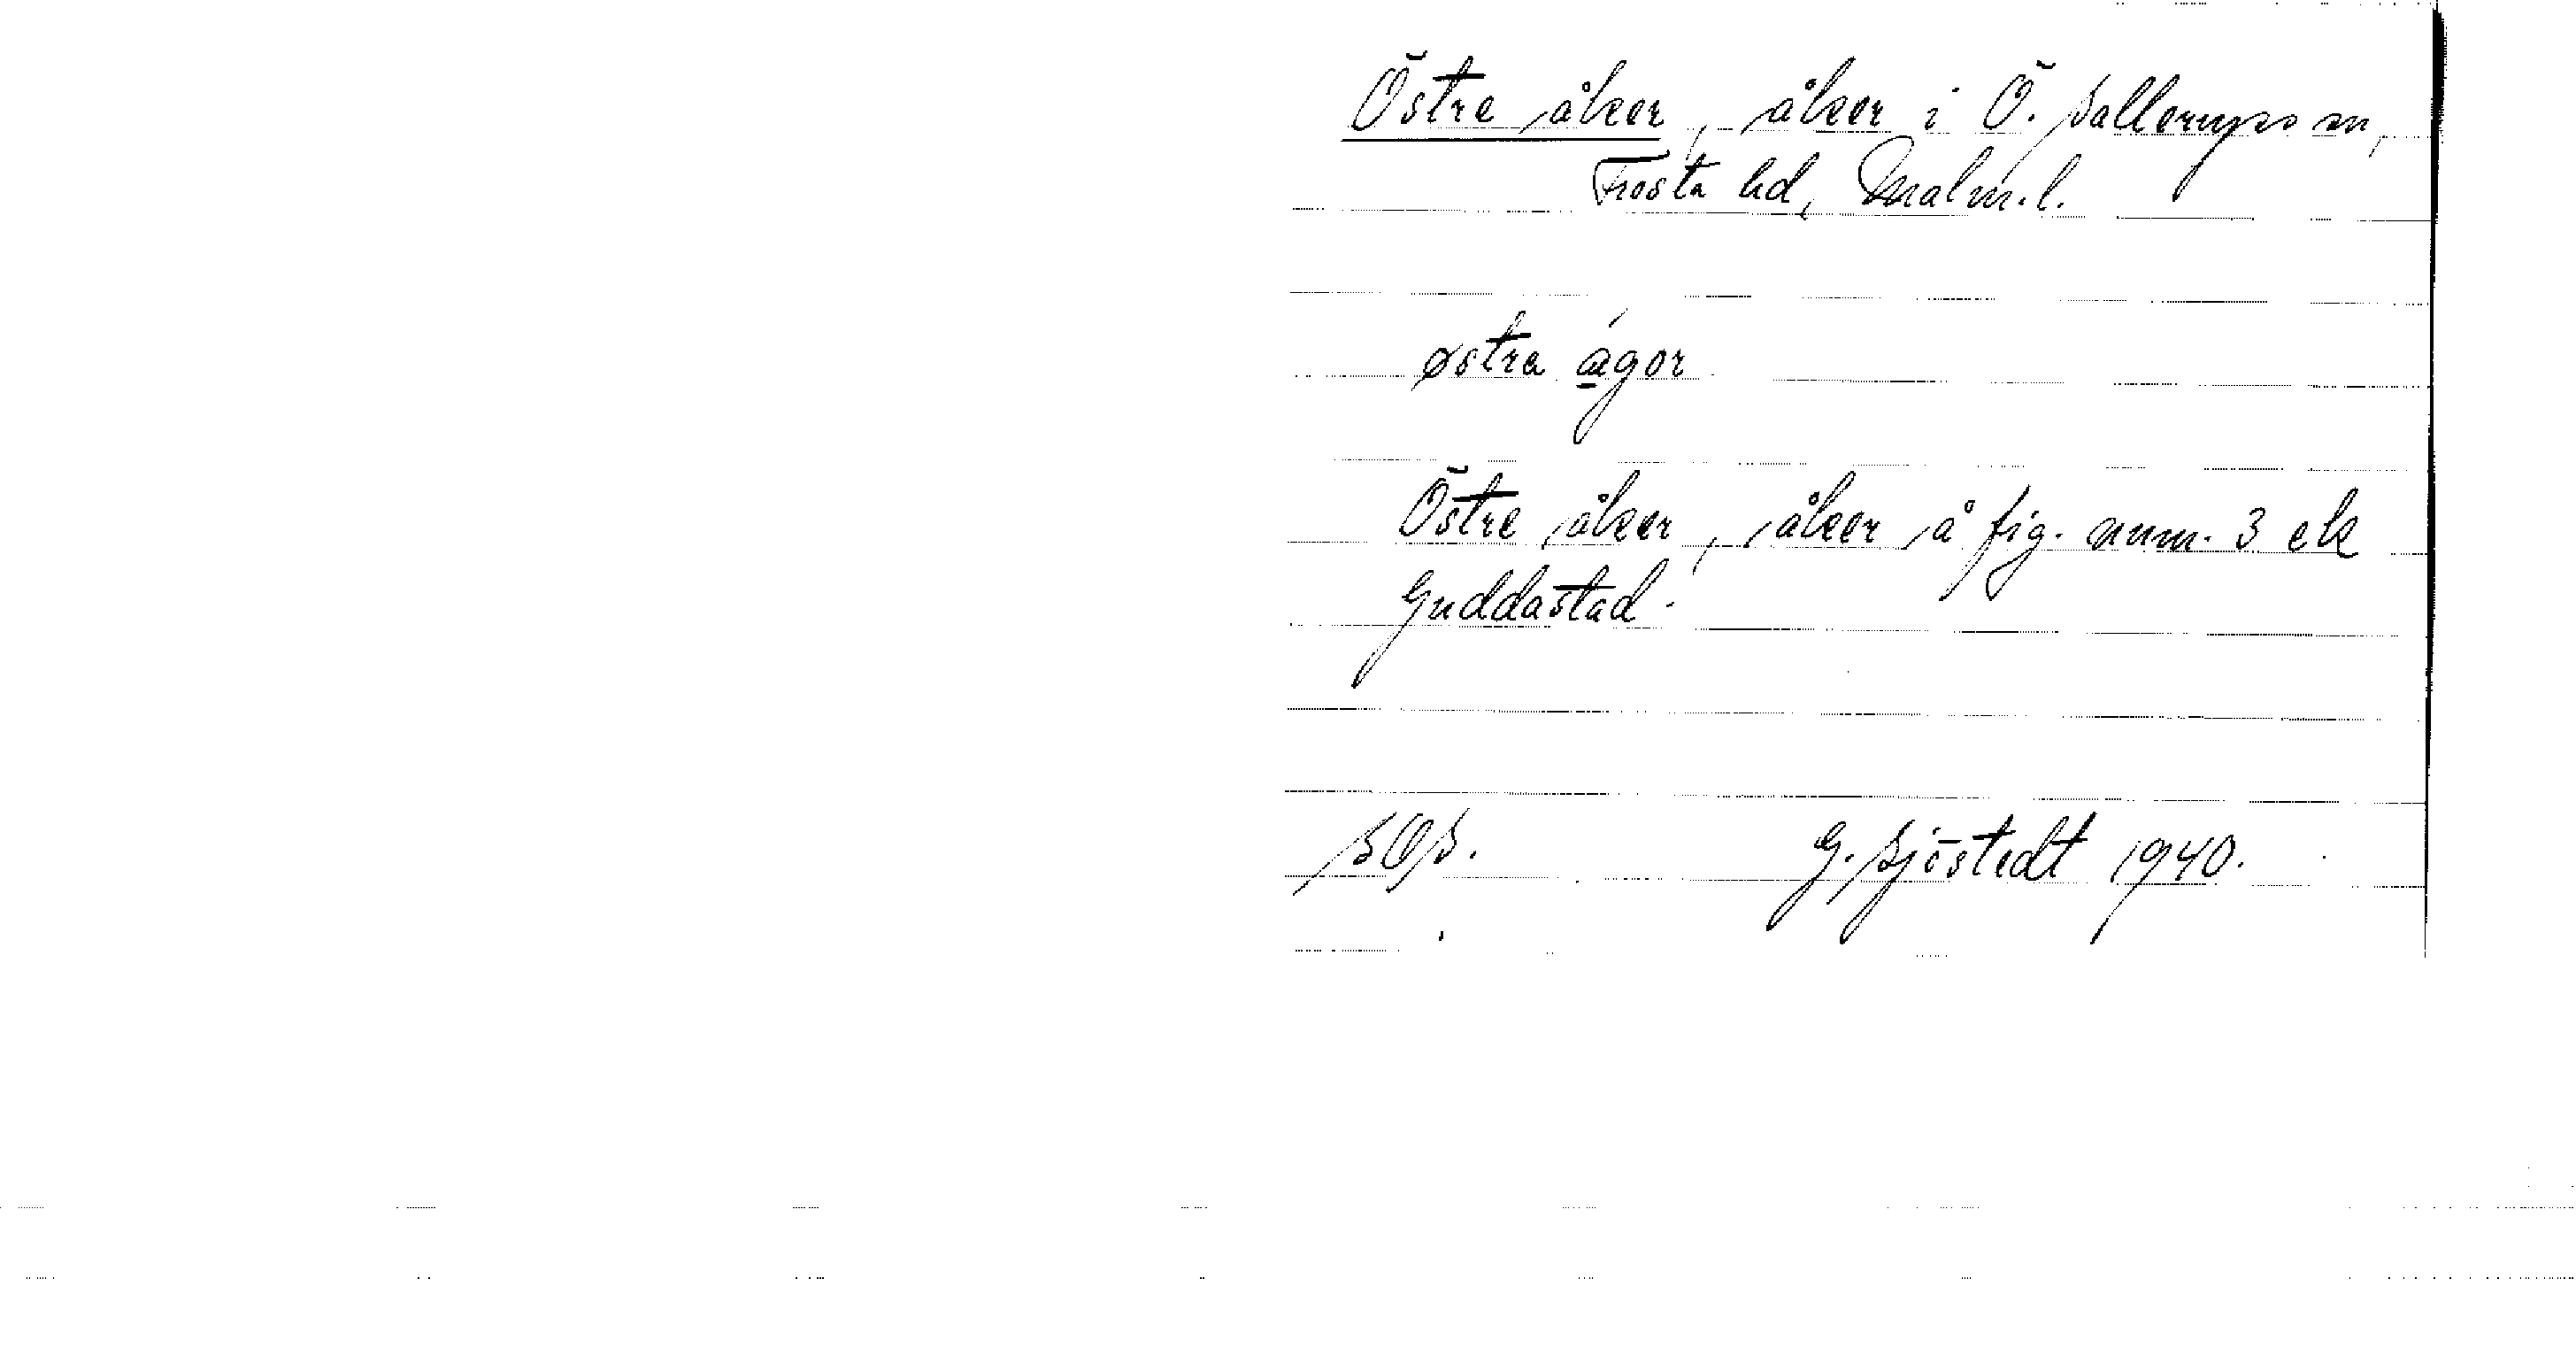 Östre åker, åker i Ö. Sallerups sn,
Frosta hd, Malm.l.
østra ágor
Östre åker, åker å fig. num. 3 ek
Guddastad.
SOS. G. Sjöstedt 1940.